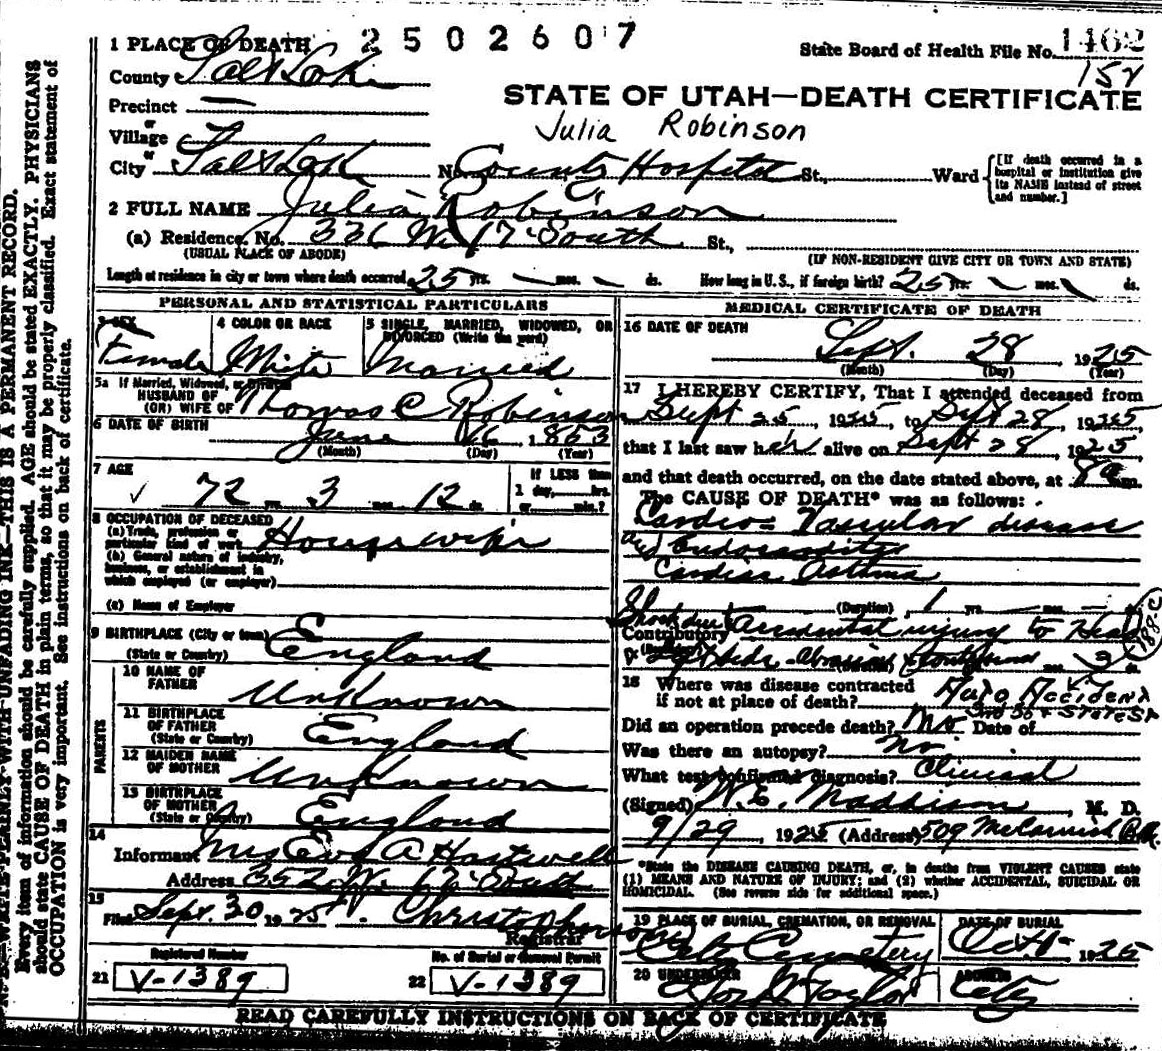 1 PLACE OF DEATH 2502607
State Board of Health File No. 1462
County Salt Lake
152
Precinct —
STATE OF UTAH—DEATH CERTIFICATE
or
Village
Julia Robinson
or
City Salt Lake No. County Hospital St., Ward
[If death occurred in a hospital or institution give its NAME instead of street and number.]
2 FULL NAME Julia Robinson
(a) Residence. No. 336 W. 17 South St.,
(USUAL PLACE OF ABODE) (IF NON-RESIDENT GIVE CITY OR TOWN AND STATE)
Length of residence in city or town where death occurred 25 yrs. — mos. ds. How long in U.S., if foreign birth? 25 yrs. mos. ds.
PERSONAL AND STATISTICAL PARTICULARS
3 SEX 4 COLOR OR RACE 5 SINGLE, MARRIED, WIDOWED, OR DIVORCED (Write the word)
Female White Married
5a If Married, Widowed, or Divorced
HUSBAND OF
(OR) WIFE OF Thomas C Robinson
6 DATE OF BIRTH June 16 1853
(Month) (Day) (Year)
7 AGE If LESS than
1 day, hrs.
72 yrs. 3 mos. 12 ds. or min.?
8 OCCUPATION OF DECEASED
(a) Trade, profession or
particular kind of work Housewife
(b) General nature of industry,
business, or establishment in
which employed (or employer)
(c) Name of Employer
9 BIRTHPLACE (City or town)
(State or Country) England
PARENTS
10 NAME OF
FATHER Unknown
11 BIRTHPLACE
OF FATHER England
(State or Country)
12 MAIDEN NAME
OF MOTHER Unknown
13 BIRTHPLACE
OF MOTHER England
(State or Country)
14
Informant Mrs Eva A Hartwell
Address 352 W. 17 South
15
Filed Sept. 30 1925 Christopherson
Registrar
Registered Number No. of Burial or Removal Permit
21 V-1389 22 V-1389
MEDICAL CERTIFICATE OF DEATH
16 DATE OF DEATH
Sept. 28 1925
(Month) (Day) (Year)
17 I HEREBY CERTIFY, That I attended deceased from
Sept 25, 1925, to Sept 28, 1925
that I last saw her alive on Sept 28, 1925
and that death occurred, on the date stated above, at 8 a m.
The CAUSE OF DEATH* was as follows:
Cardio-Vascular disease
and Endocarditis
Cardiac Asthma
(Duration) 1 yrs. mos.
Shock due
Contributory Accidental injury to Head
188-C
mos. 3 ds.
18 Where was disease contracted
if not at place of death? Auto Accident
STATE ST
Did an operation precede death? No Date of
Was there an autopsy? No
What test confirmed diagnosis? Clinical
(Signed) W. E. Maddison, M. D.
9/29, 1925 (Address) 509 McCornick
*State the DISEASE CAUSING DEATH, or, in deaths from VIOLENT CAUSES state
(1) MEANS AND NATURE OF INJURY; and (2) whether ACCIDENTAL, SUICIDAL OR
HOMICIDAL. (See reverse side for additional space.)
19 PLACE OF BURIAL, CREMATION, OR REMOVAL DATE OF BURIAL
City Cemetery Oct 1 1925
20 UNDERTAKER ADDRESS
Jos Wm Taylor City
READ CAREFULLY INSTRUCTIONS ON BACK OF CERTIFICATE
WRITE PLAINLY WITH UNFADING INK—THIS IS A PERMANENT RECORD.
Every item of information should be carefully supplied. AGE should be stated EXACTLY. PHYSICIANS
should state CAUSE OF DEATH in plain terms, so that it may be properly classified. Exact statement of
OCCUPATION is very important. See instructions on back of certificate.